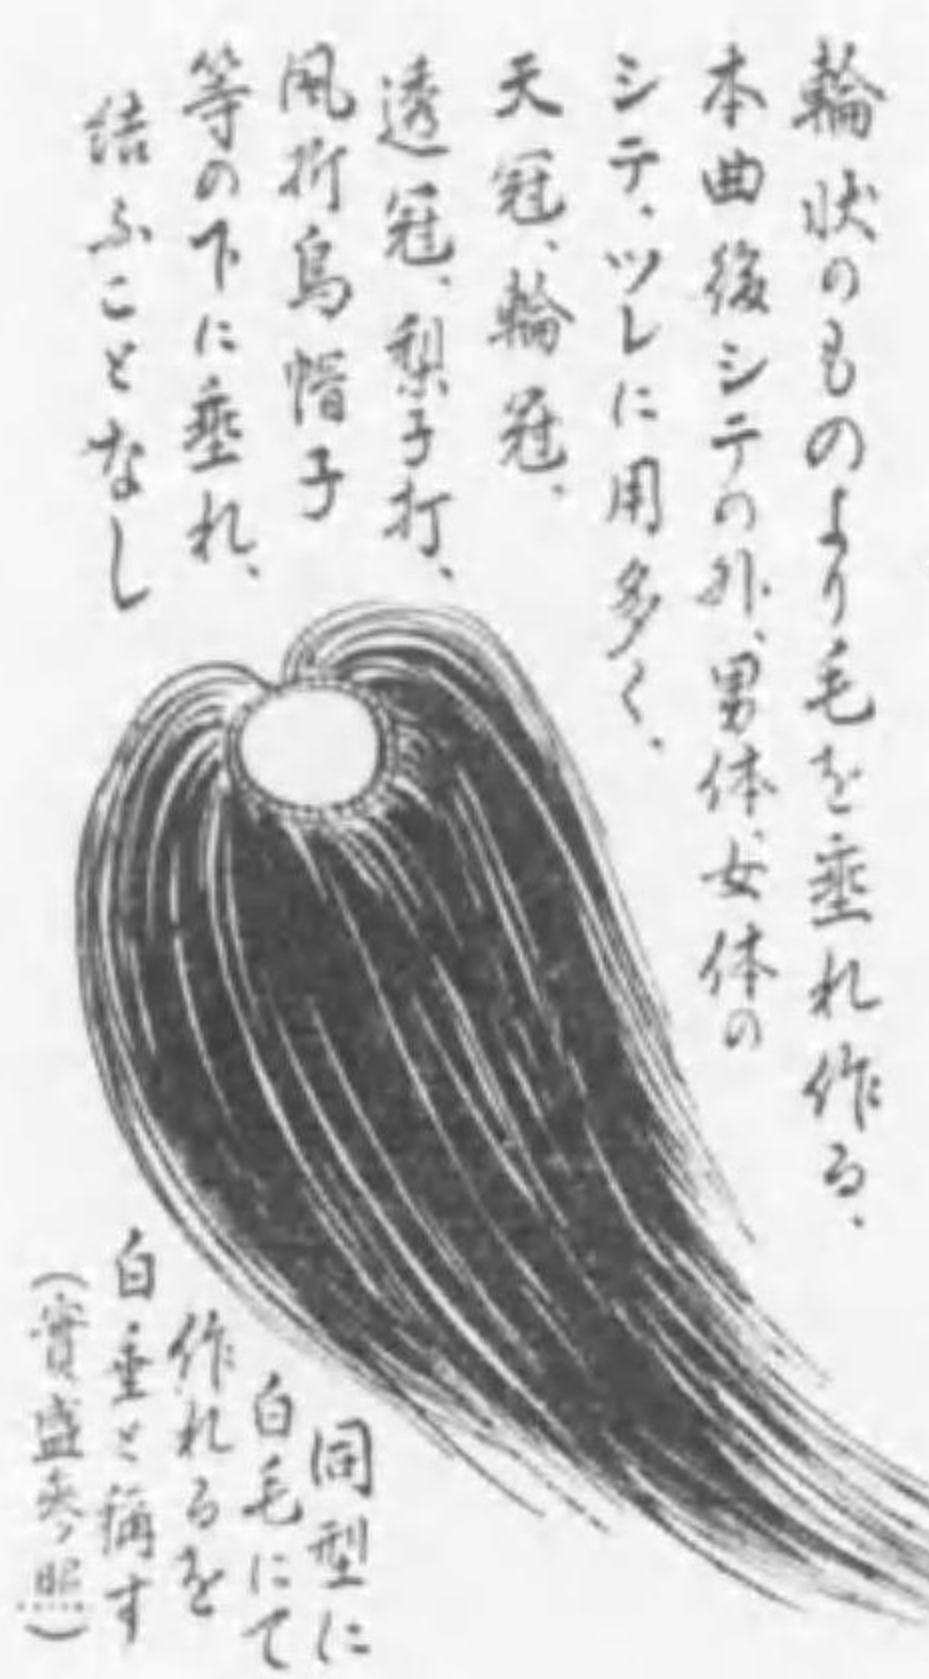 輪状のものより毛を垂れ作る、
本曲後シテの外、男体、女体の
シテ、ツレに用多く、
天冠、輪冠、
透冠、梨子打、
風折烏帽子
等の下に垂れ、
結ふことなし
同型に
白毛にて
作れるを
白垂と称す
(實盛参照)